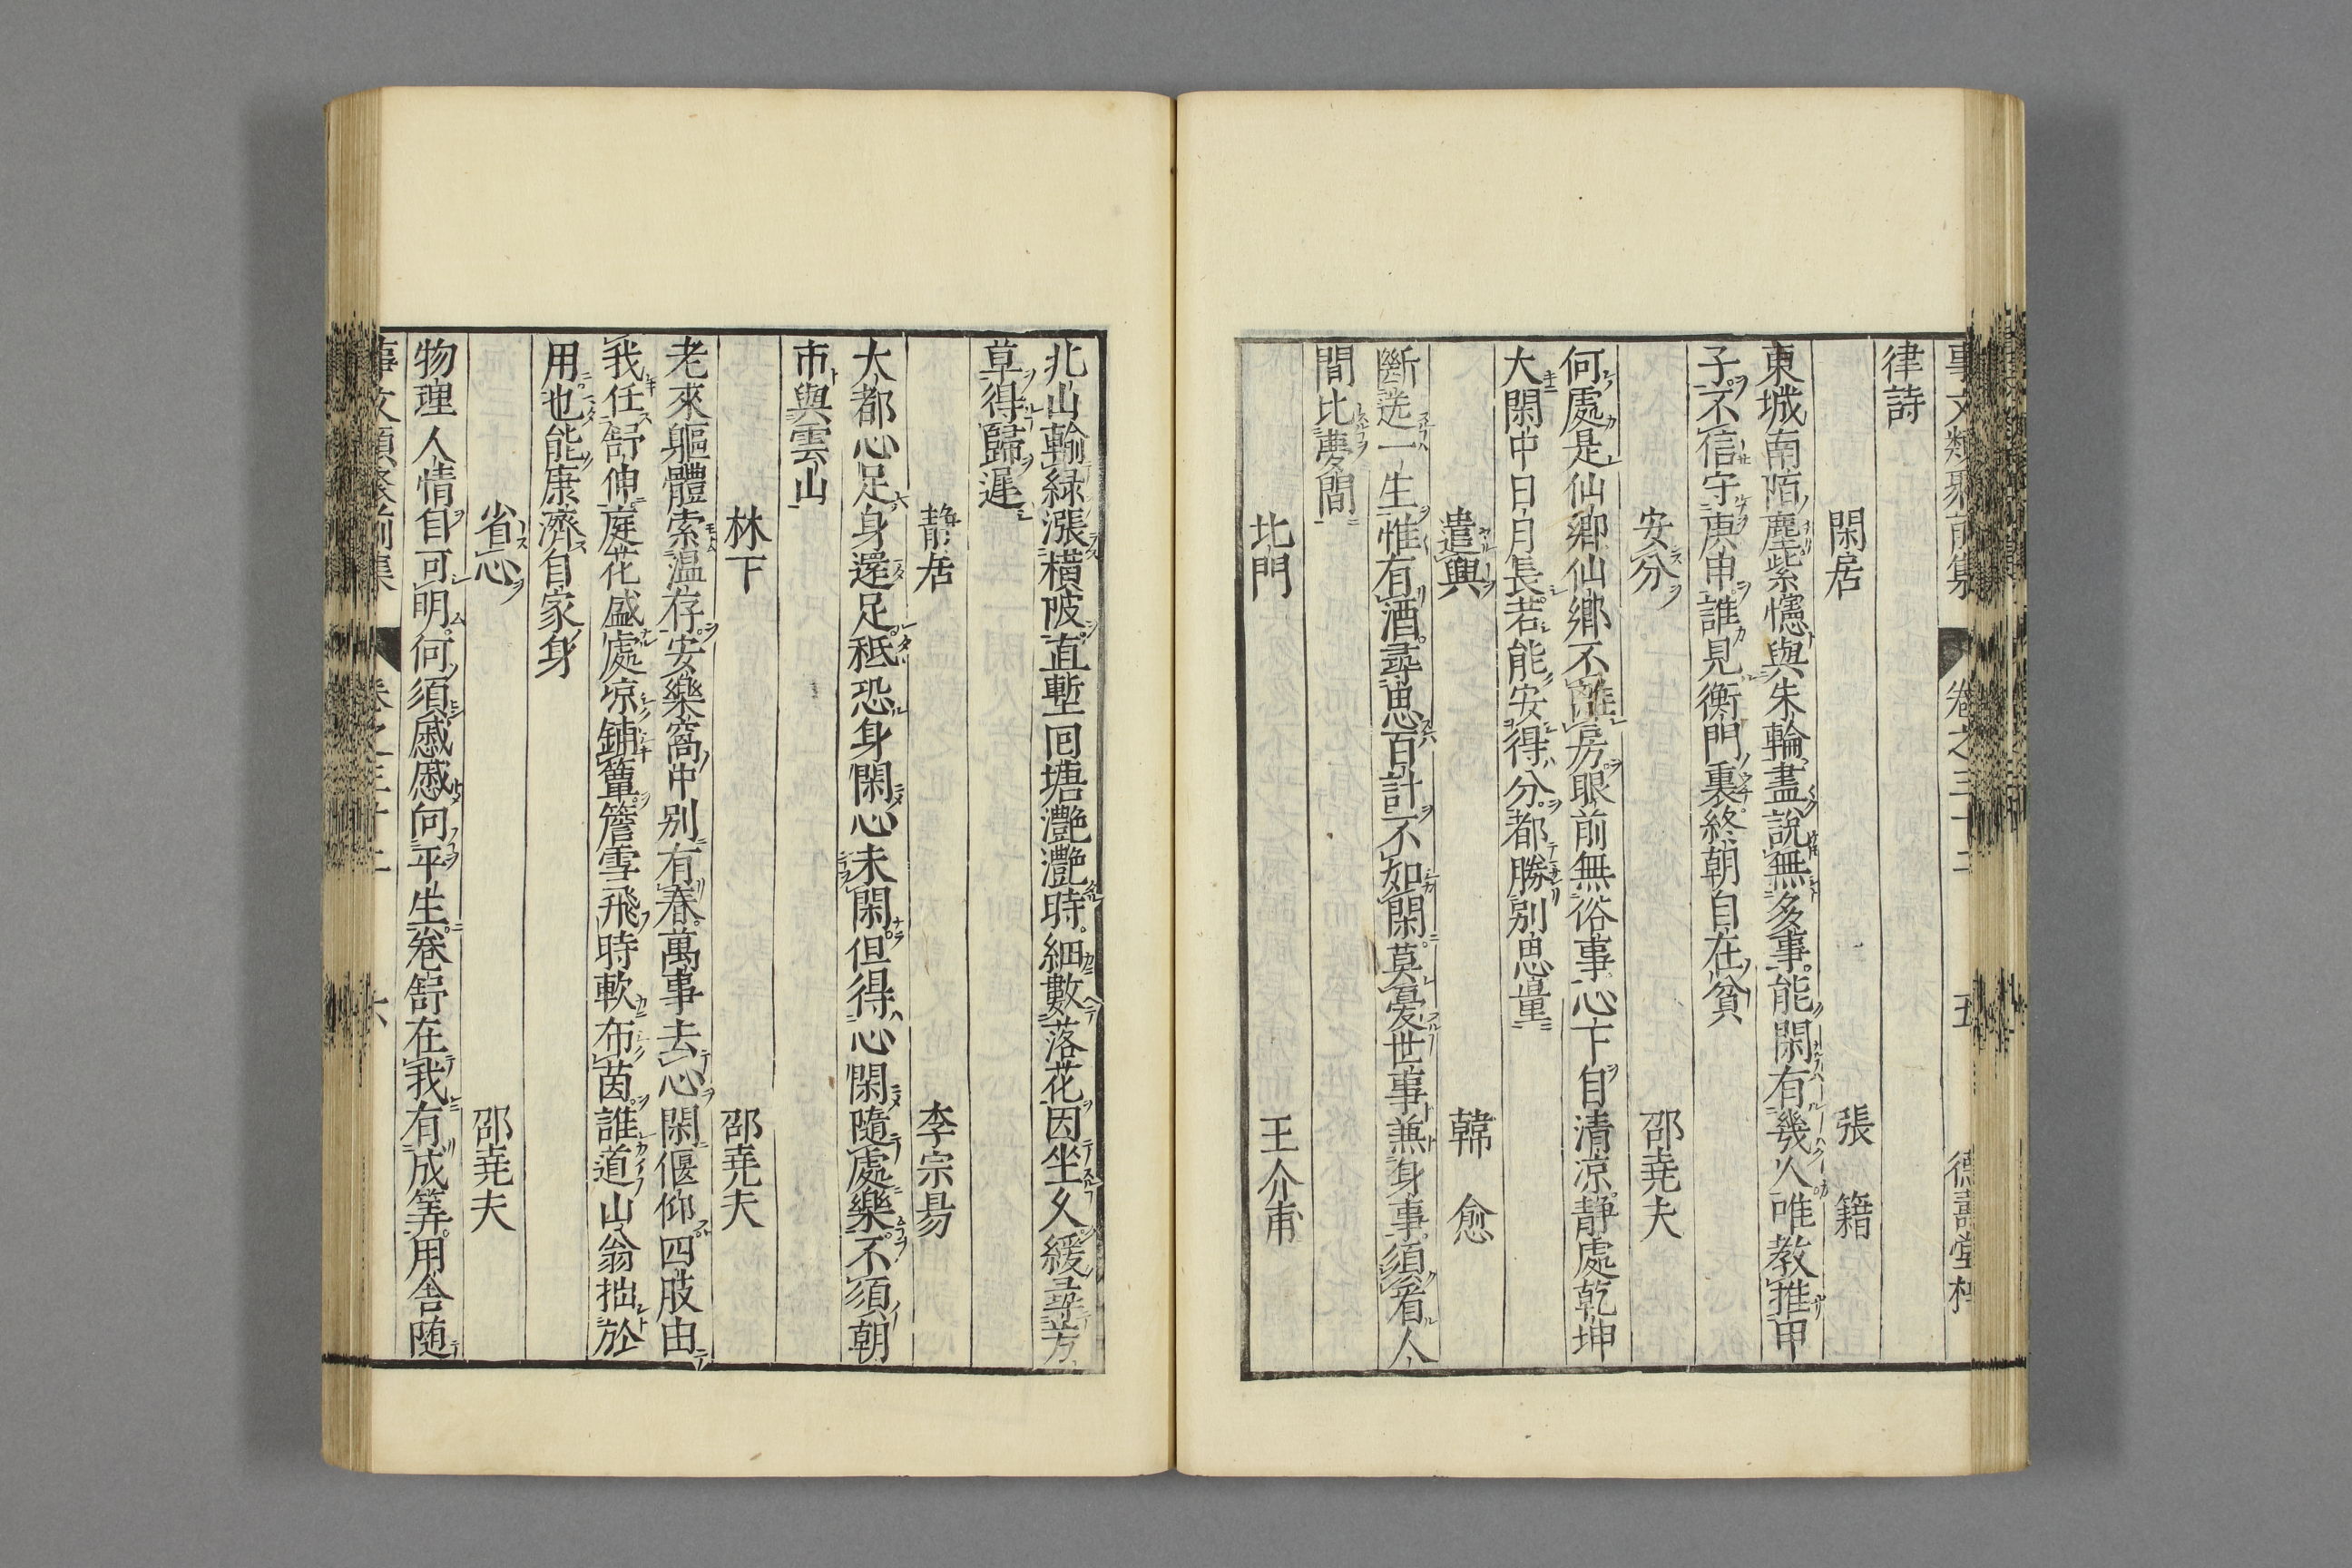 事文類聚前集 卷之三十三 五 德壽堂梓
律詩
閑居 張籍
東城南陌塵紫幰與朱輪盡說無多事能閑有幾人唯教推甲
子不信守庚申誰見衡門裏終朝自在貧
安分 邵堯夫
何處是仙鄉仙鄉不離房眼前無俗事心下自清凉靜處乾坤
大閑中日月長若能安得分都勝別思量
遣興 韓愈
斷送一生惟有酒尋思百計不如閑莫憂世事兼身事須着人
間比夢間
北門 王介甫
北山輸綠漲橫陂直塹回塘灩灩時細數落花因坐久緩尋芳
草得歸遲
靜居 李宗易
大都心足身還足秪恐身閑心未閑但得心閑隨處樂不須朝
市與雲山
林下 邵堯夫
老來軀體索溫存安樂窩中別有春萬事去心閑偃仰四肢由
我任舒伸庭花盛處凉鋪簟簷雪飛時軟布茵誰道山翁拙於
用也能康濟自家身
省心 邵堯夫
物理人情自可明何須慼慼向平生卷舒在我有成筭用舍随
事文類聚前集 六